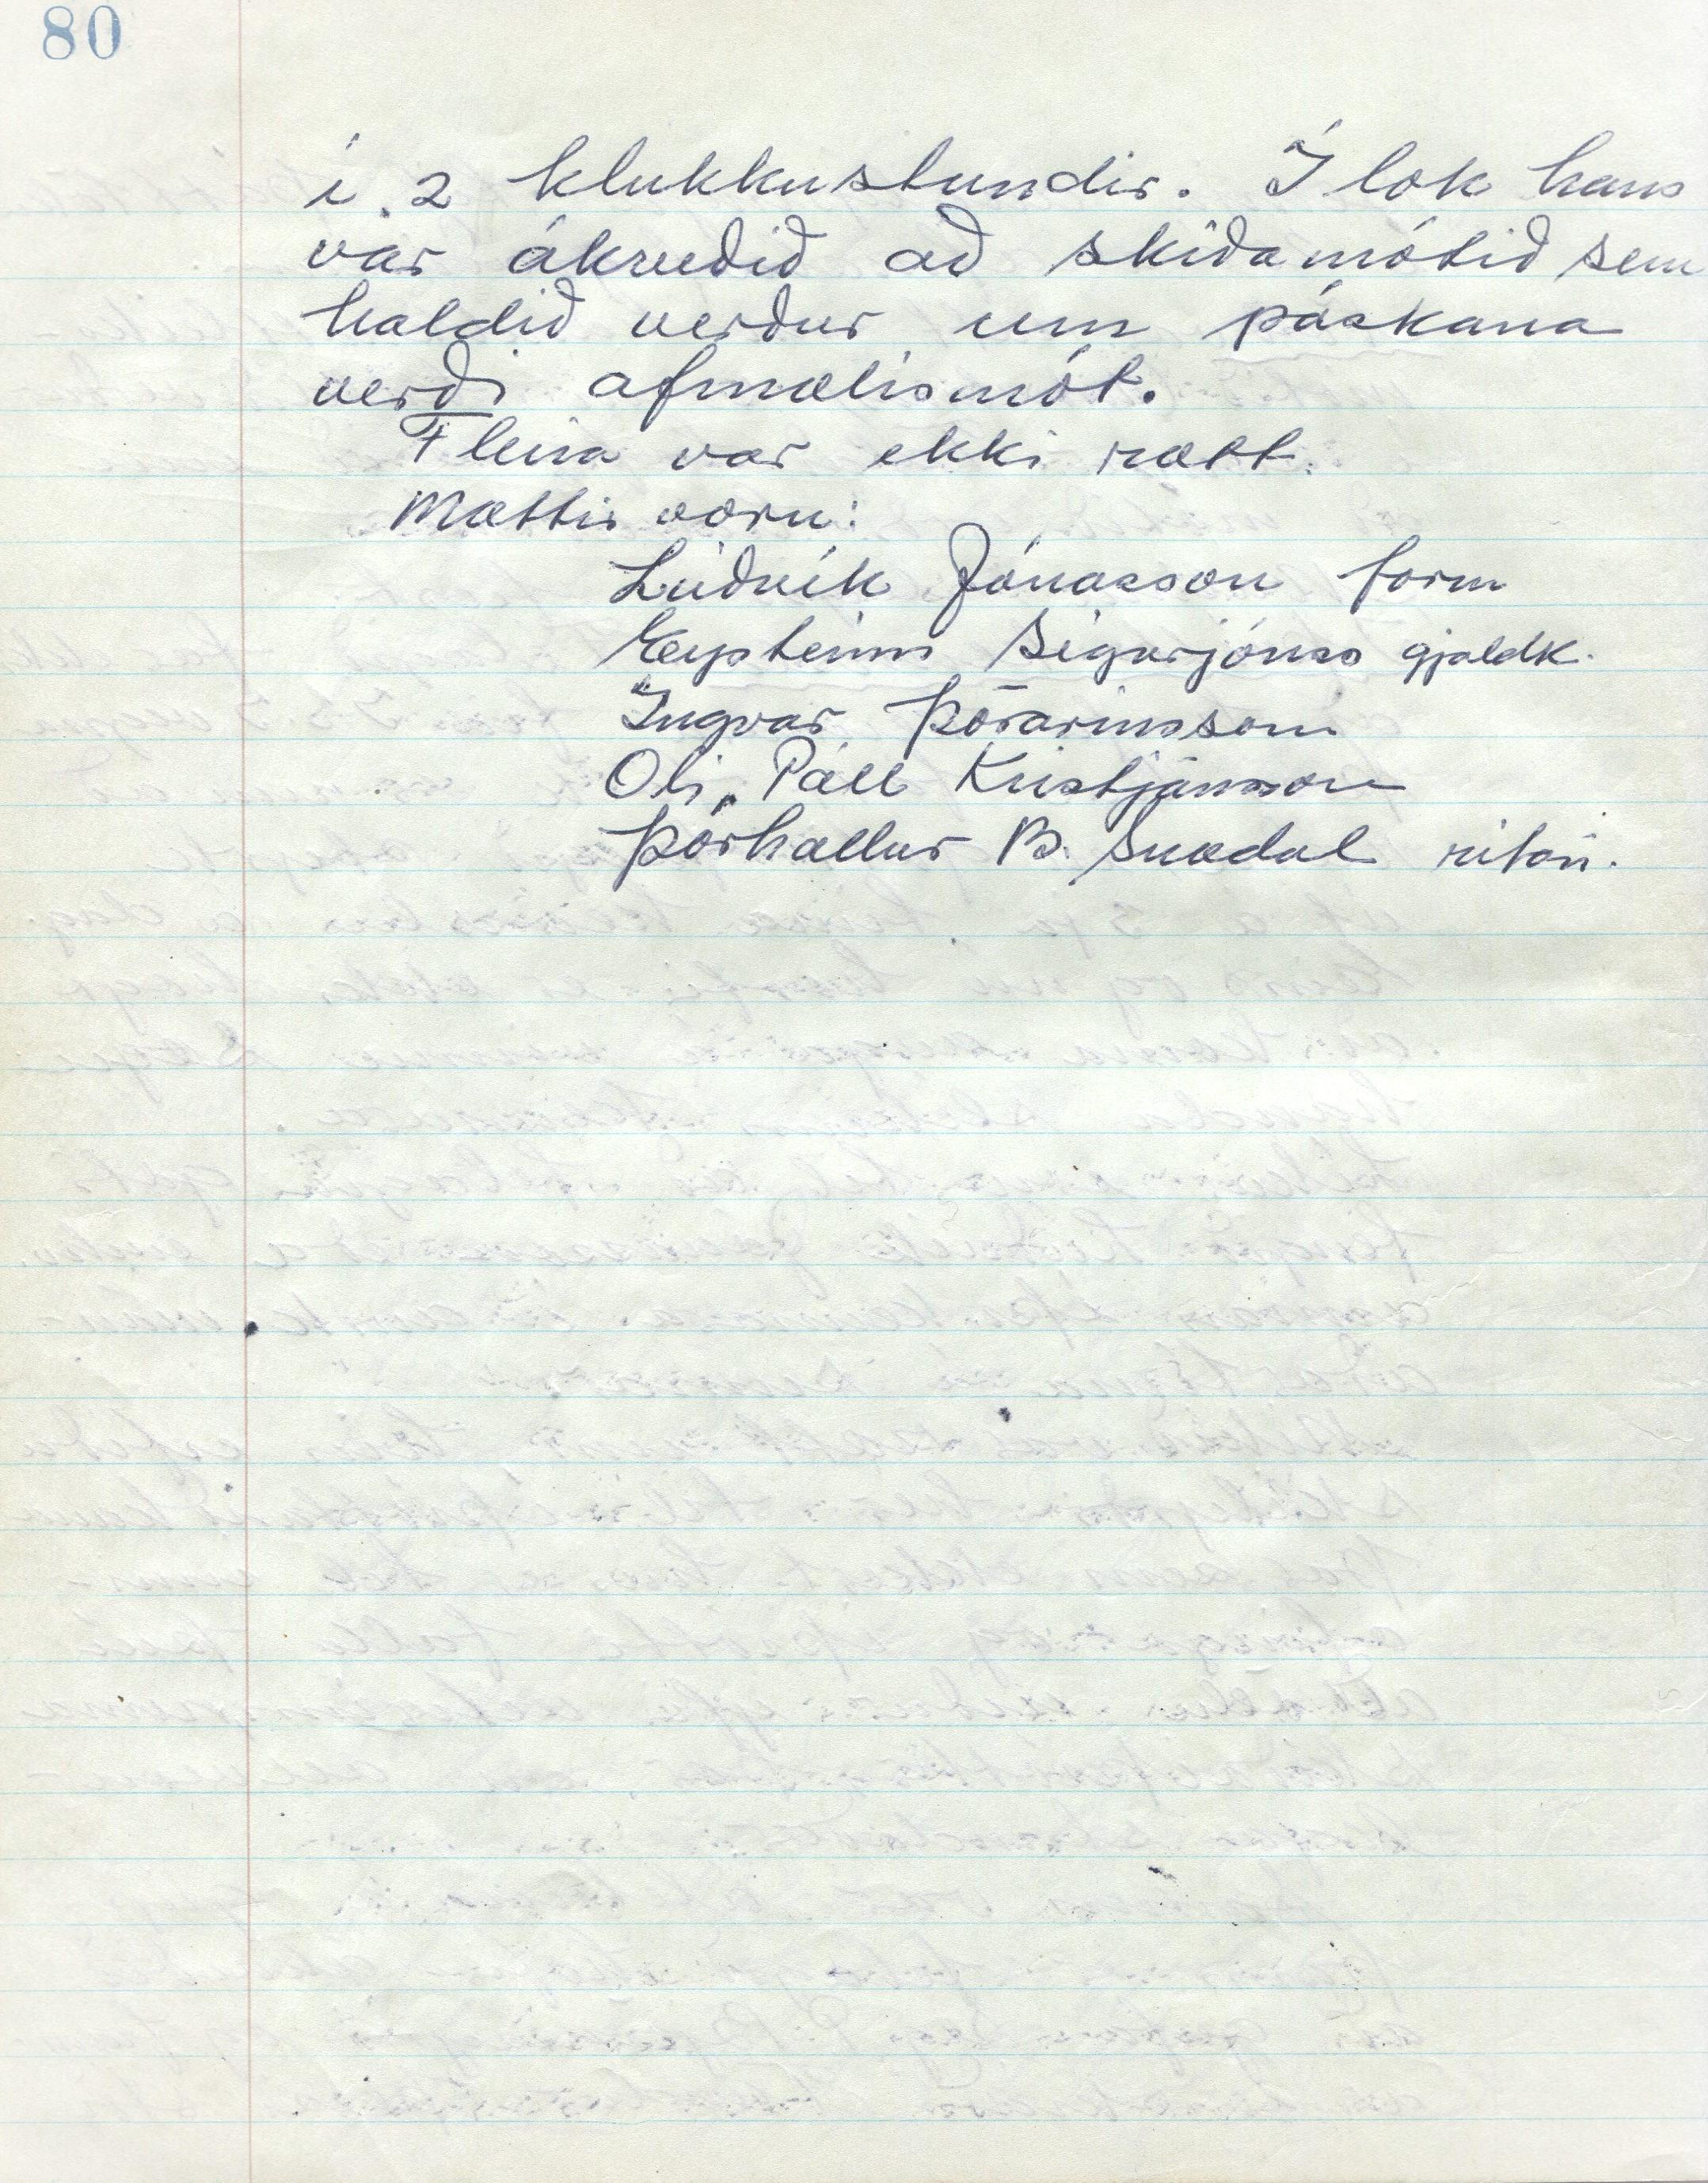 80
í 2 klukkustundir. Í lok hans
var ákvedið að skíðamótið sem
haldið verður um páskana
verði afmælismót.
Fleira var ekki rætt.
Mættir voru:
Lúðvík Jónasson form
Eysteinn Sigurjónss gjaldk.
Ingvar Þórarinsson
Óli Páll Kristjánsson
Þórhallur B. Snædal ritari.